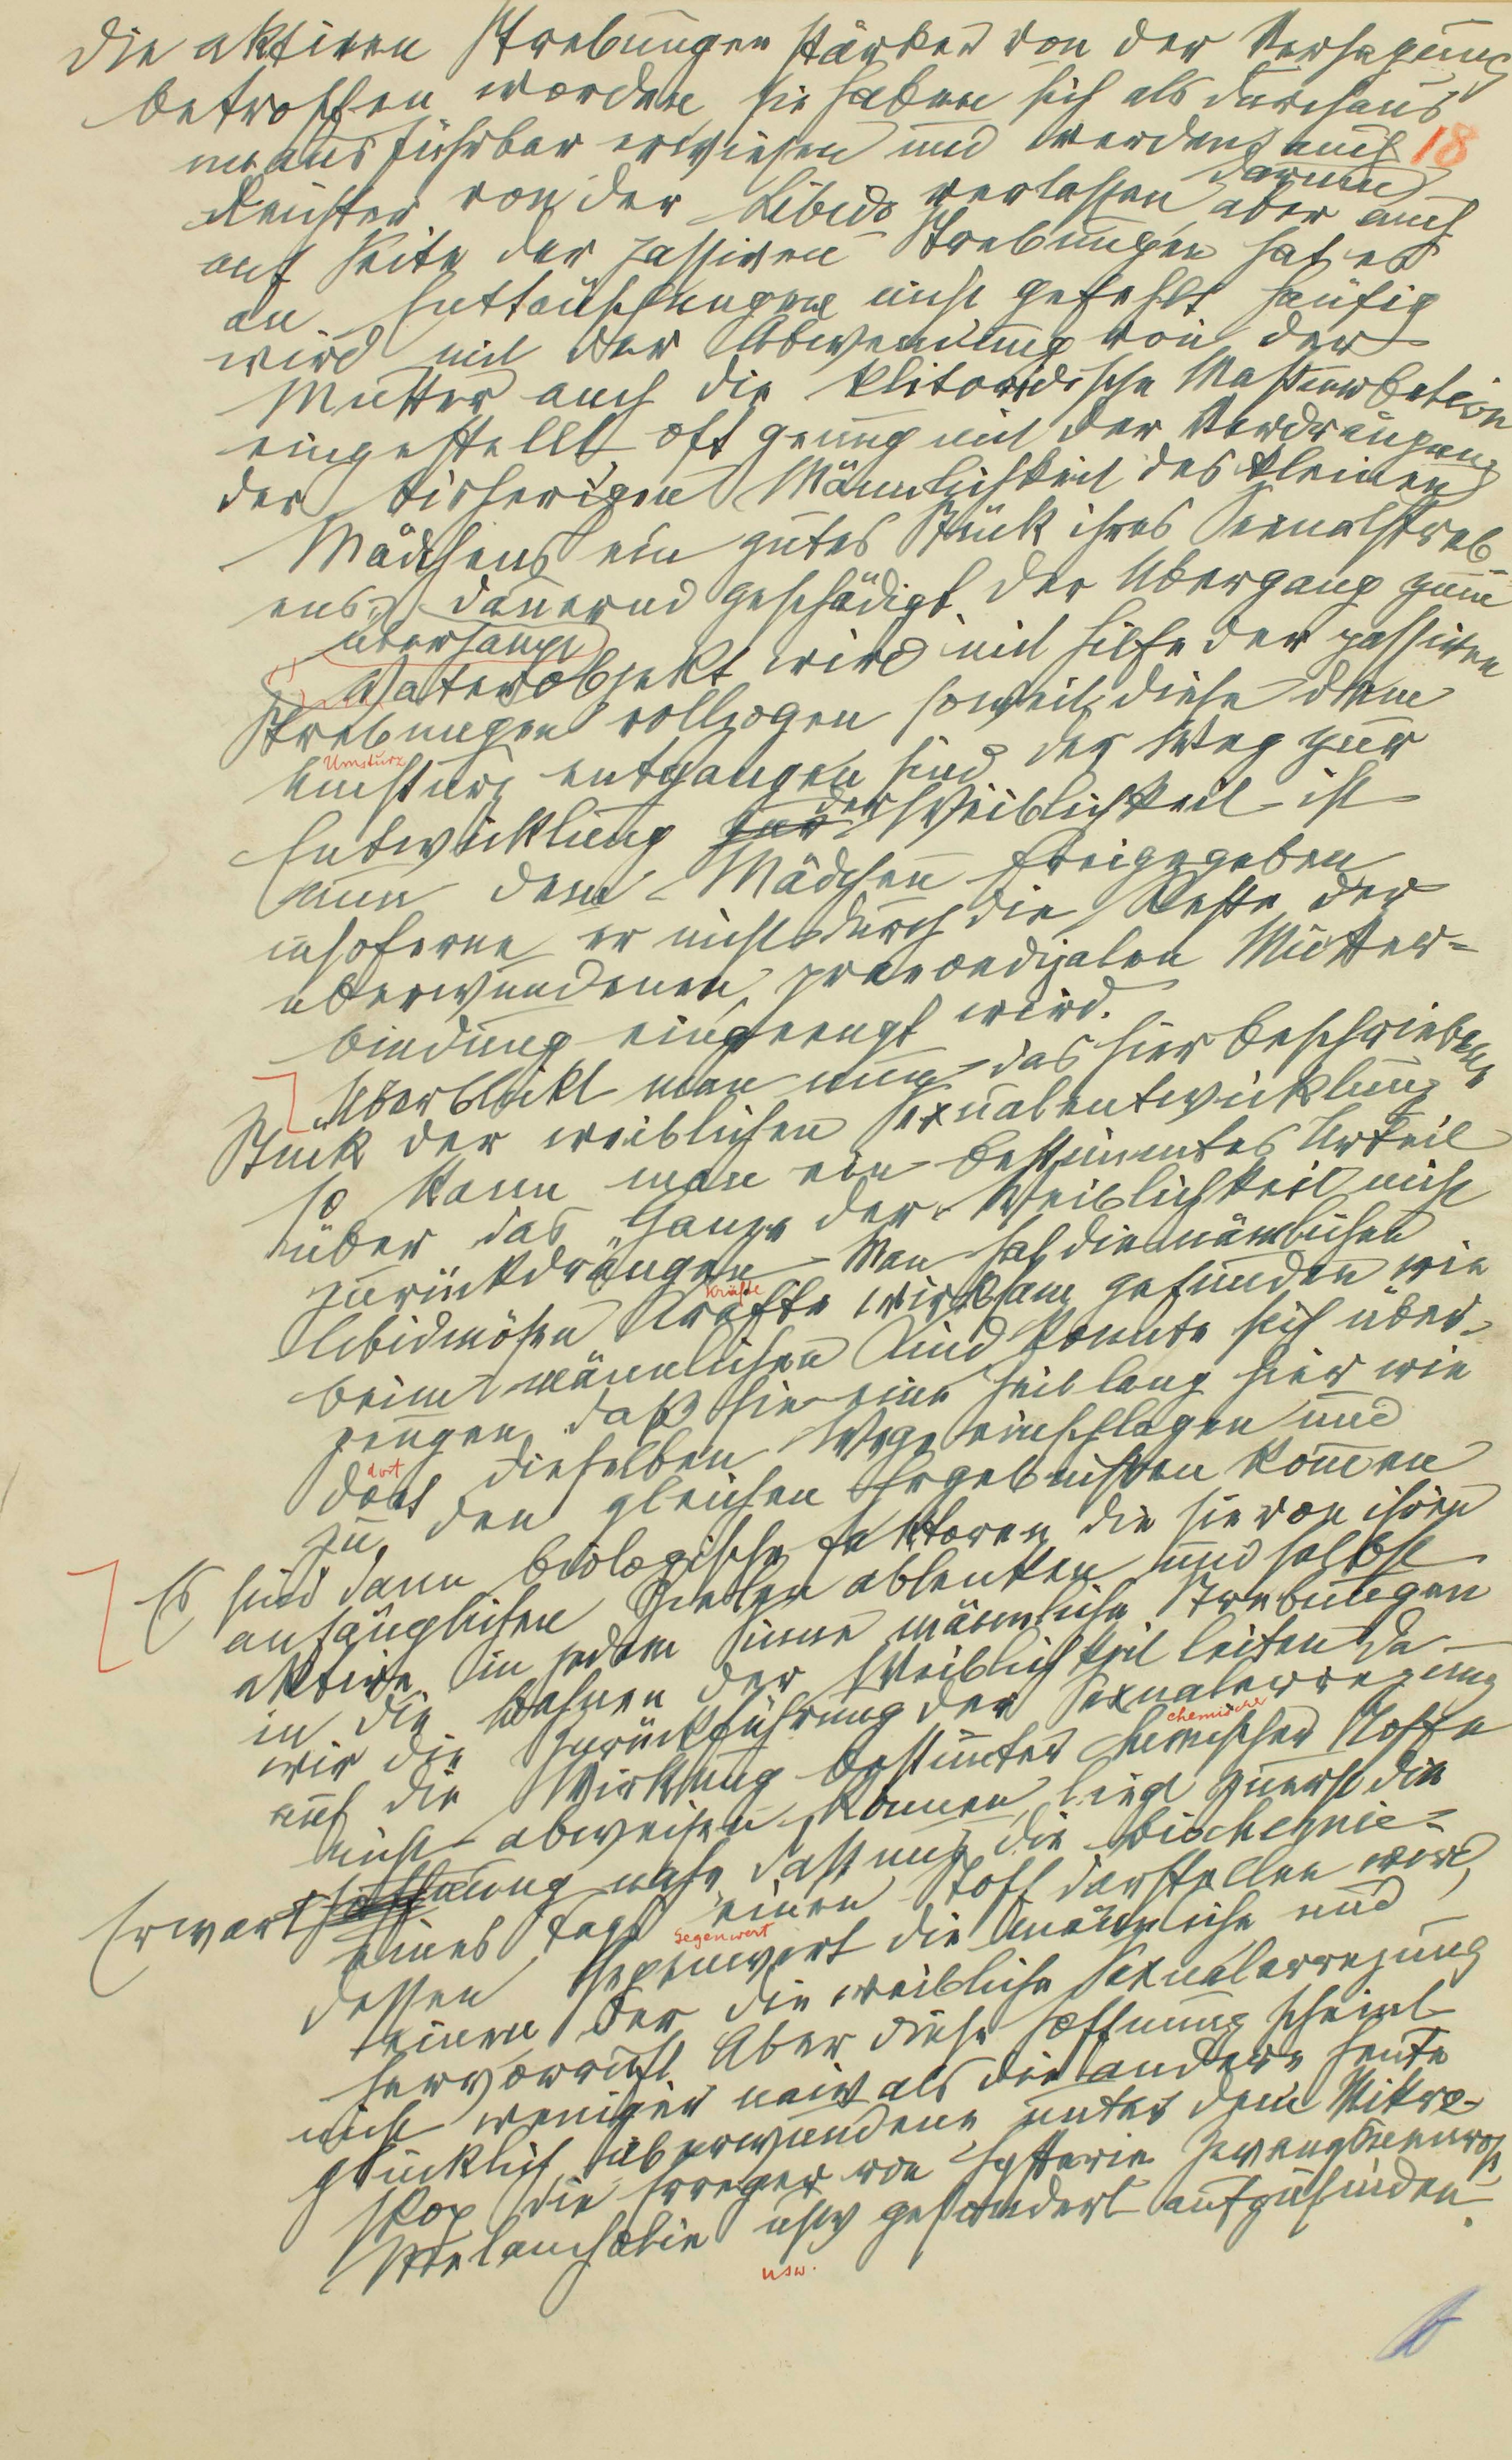 die aktiven Strebungen stärker von der Versagung
betroffen worden sie haben sich als durchaus
unausführbar erwiesen und werden auch 18
darum
leichter von der Libido verlassen aber auch
auf Seite der passiven Strebungen hat es
an Enttäuschungen nicht gefehlt häufig
wird mit der Abwendung von der
Mutter auch die klitoridische Masturbation
eingestellt oft genug mit der Verdrängung
der bisherigen Männlichkeit des kleinen
Mädchens ein gutes Stück ihres Sexualstreb-
ens dauernd geschädigt. Der Übergang zum
überhaupt
Vaterobjekt wird mit Hilfe der passiven
Strebungen vollzogen soweit diese dem
Umsturz
Umsturz entgangen sind der Weg zur
der
Entwicklung zur Weiblichkeit ist
nun dem Mädchen freigegeben
insoferne er nicht durch die Reste der
überwundenen praeoedipalen Mutter-
bindung eingeengt wird.
Überblickt man nun das hier beschriebene
Stück der weiblichen Sexualentwicklung
so kann man ein bestimmtes Urteil
über das Ganze der Weiblichkeit nicht
zurückdrängen Man hat die nämlichen
Kräfte
libidinösen Kräfte wirksam gefunden wie
beim männlichen Kind konnte sich über-
zeugen daß sie eine Zeit lang hier wie
dort
dort dieselben Wege einschlagen und
zu den gleichen Ergebnissen kommen
Es sind dann biologische Faktoren die sie von ihren
anfänglichen Zielen ablenken und selbst
aktive in jedem Sinne männliche Strebungen
in die Bahnen der Weiblichkeit leiten Da
wir die Zurückführung der Sexualerregung
chemische
auf die Wirkung bestimmter chemischer Stoffe
nicht abweisen können liegt zuerst die
Erwartung nahe dass uns die Biochemie
eines Tags einen Stoff darstellen wird,
Gegenwart
dessen Gegenwart die männliche und
einen der die weibliche Sexualerregung
hervorruft. Aber diese Hoffnung scheint
nicht weniger naiv als die andere heute
glücklich überwundene unter dem Mikro-
skop die Erreger von Hysterie Zwangsneurose
Melancholie usw gesondert aufzufinden.
usw.